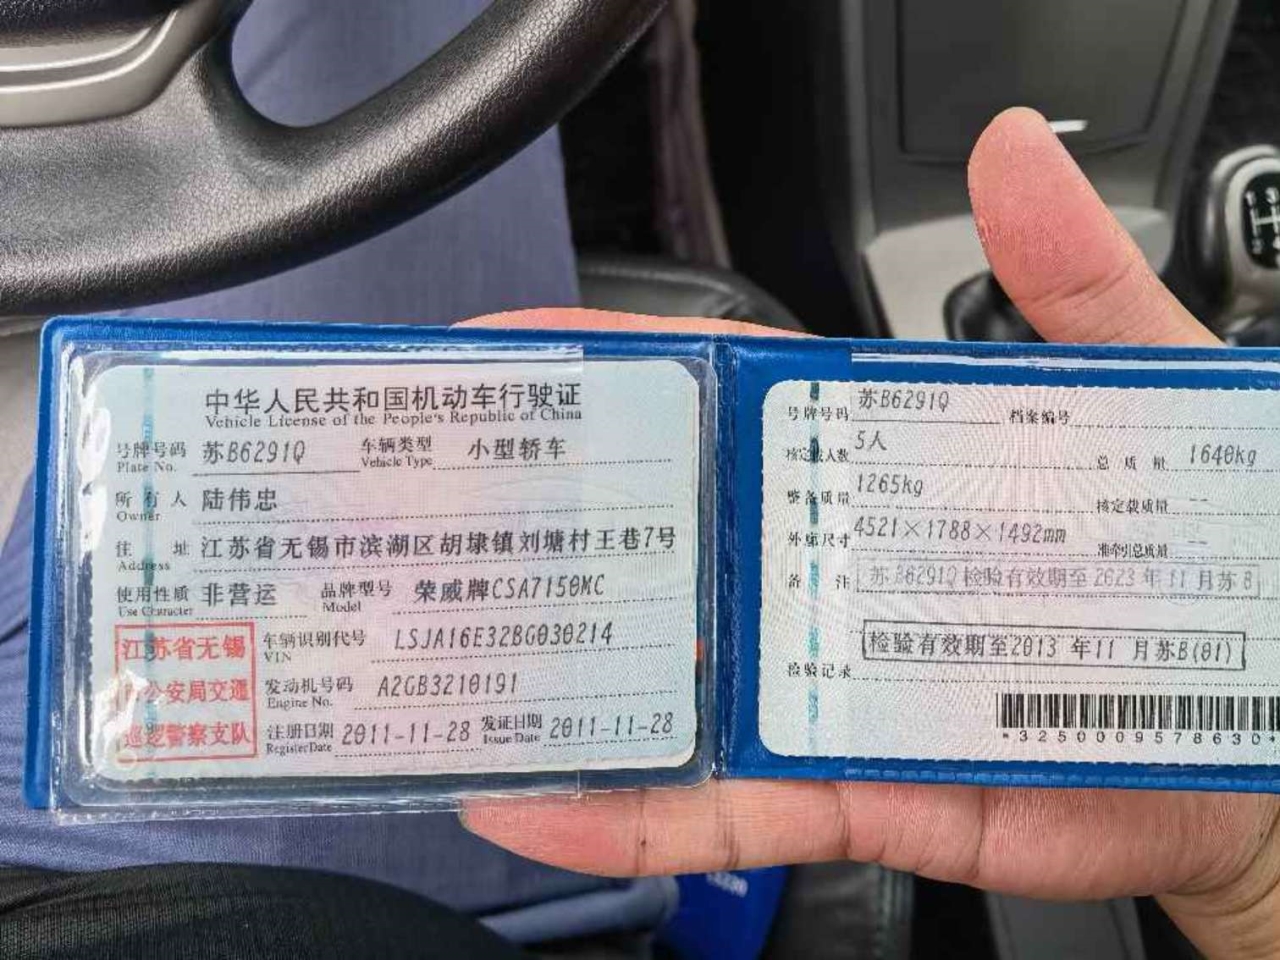 中华人民共和国机动车行驶证
Vehicle License of the People's Republic of China
号牌号码 苏B6291Q 车辆类型 小型轿车
Plate No. Vehicle Type
所有人 陆伟忠
Owner
住址 江苏省无锡市滨湖区胡埭镇刘塘村王巷7号
Address
使用性质 非营运 品牌型号 荣威牌CSA7150MC
Use Character Model
江苏省无锡
市公安局交通
巡逻警察支队
车辆识别代号 LSJA16E32BG030214
VIN
发动机号码 A2GB3210191
Engine No.
注册日期 2011-11-28 发证日期 2011-11-28
Register Date Issue Date
号牌号码 苏B6291Q 档案编号
核定载人数 5人 总质量 1640kg
整备质量 1265kg 核定载质量 --
外廓尺寸 4521×1788×1492mm 准牵引总质量 --
备注 苏B6291Q 检验有效期至2023年11月苏B
检验有效期至2013年11月苏B(01)
检验记录
*3250009578630*
1 3